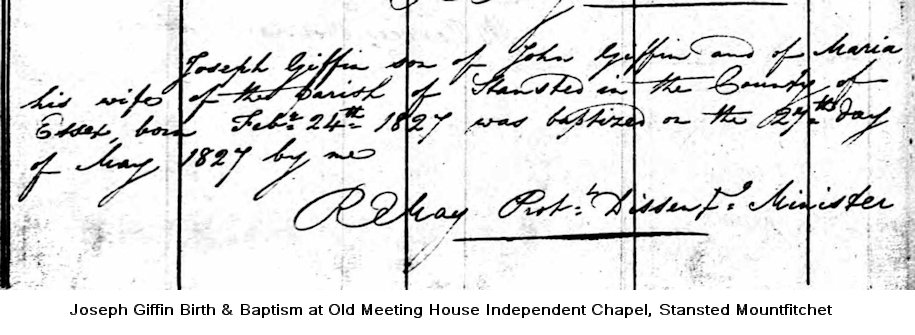 Joseph Giffin son of John Giffin and of Maria
his wife of the Parish of Stansted in the County of
Essex, born Febr. 24th 1827 was baptized on the 27th day
of May 1827 by me
R May Prott. Dissentg. Minister
Joseph Giffin Birth & Baptism at Old Meeting House Independent Chapel, Stansted Mountfitchet